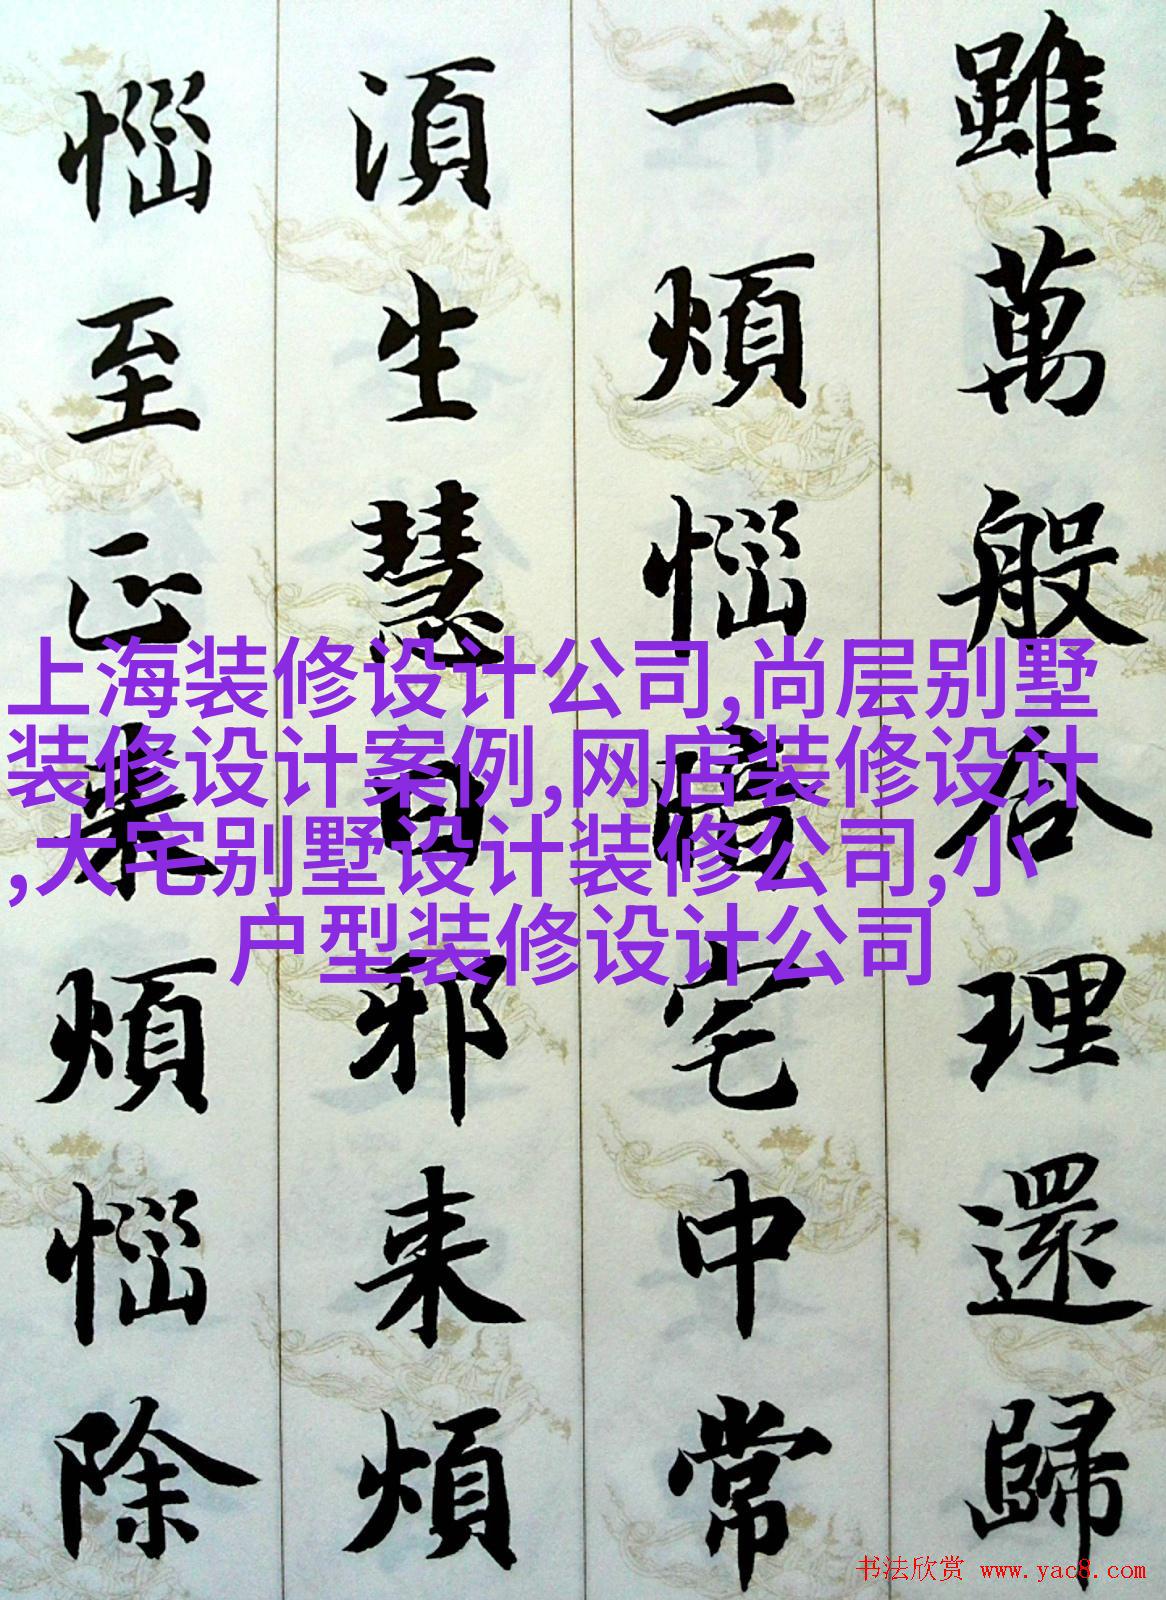 雖萬般合理還歸
一煩惱暗宅中常
須生慧日邪来煩
惱至正来煩惱除
上海装修设计公司,尚层别墅
装修设计案例,网店装修设计
,大宅别墅设计装修公司,小
户型装修设计公司
书法欣赏 www.yac8.com